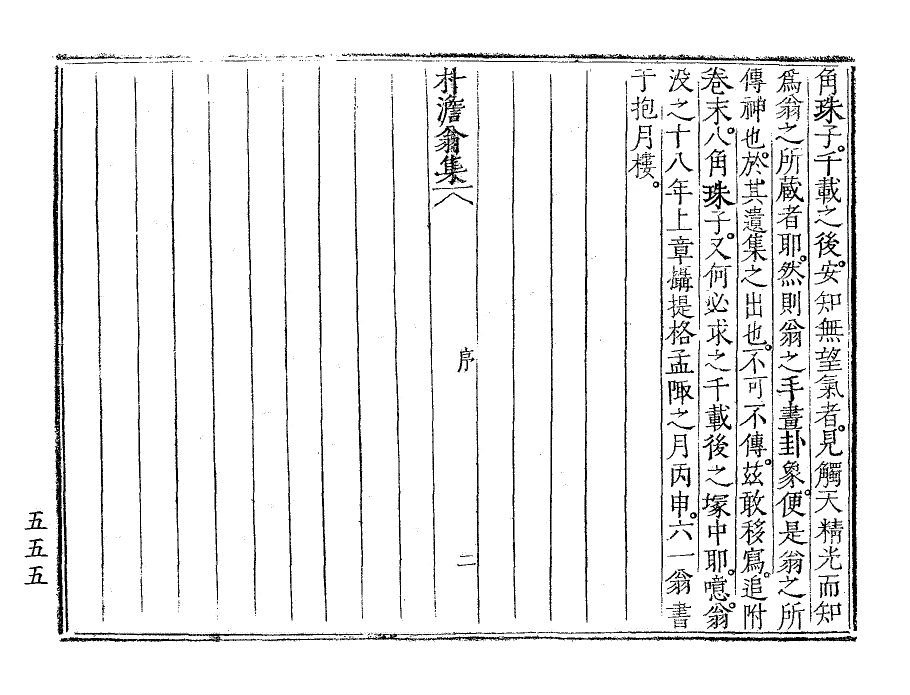 角珠子。千載之後。安知無望氣者。見觸天精光而知
爲翁之所蔵者耶。然則翁之手畫卦象。便是翁之所
傳神也。於其遺集之出也。不可不傳。玆敢移寫。追附
卷末。八角珠子。又何必求之千載後之塚中耶。噫。翁
没之十八年上章攝提格孟陬之月丙申。六一翁書
于抱月樓。
朴澹翁集
序
二
五五五